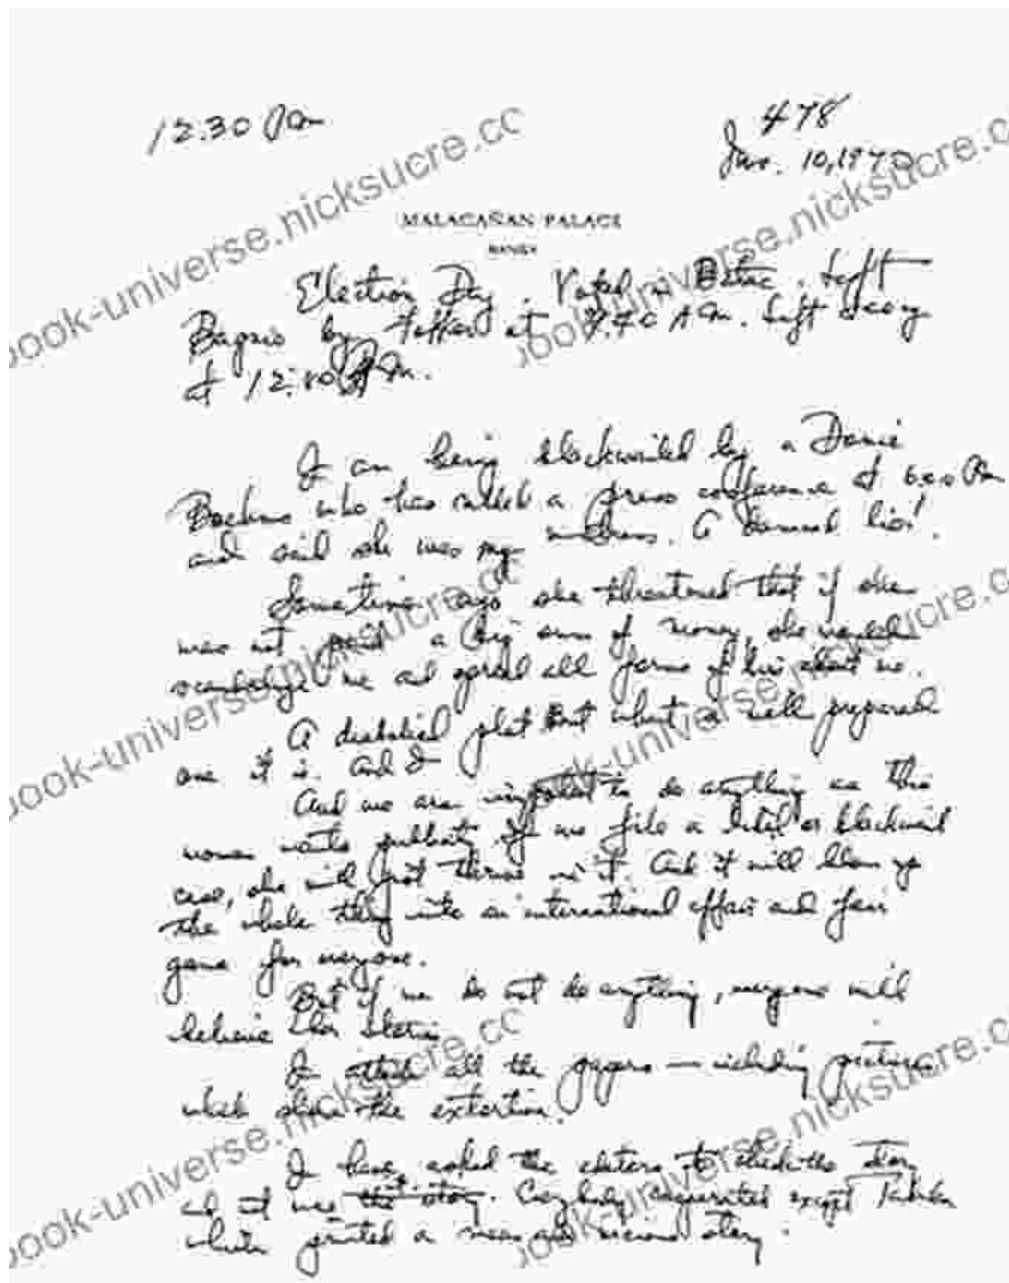 12:30 PM
478
Jan. 10, 1970
MALACAÑAN PALACE
MANILA
Election Day. Voted in Batac. Left
Baguio by at 7:40 AM. Left Laoag
at 12:10 PM.
I am being blackmailed by a Dovie
Beams who has called a press conference at 6:00 PM
and said she was my mistress. A damned lie!
Sometime ago she threatened that if she
was not paid a big sum of money, she would
scandalize me and spread all forms of lies about me.
A diabolical plot but what a well prepared
one it is. And I
And we are to do anything as this
woman wants publicity. If we file a libel or blackmail
case, she will just thrive in it. And it will blow up
the whole thing into an international affair and fair
game for everyone.
But if we do not do anything, everyone will
believe her stories.
I attach all the papers — including pictures
which show the extortion.
I have asked the editors to the story
as it was the story. Everybody cooperated except
which printed a mean and vicious story.
book-universe.nicksucre.cc
book-universe.nicksucre.c
book-universe.nicksucre.cc
book-universe.nicksucre.c
book-universe.nicksucre.cc
book-universe.nicksucre.c